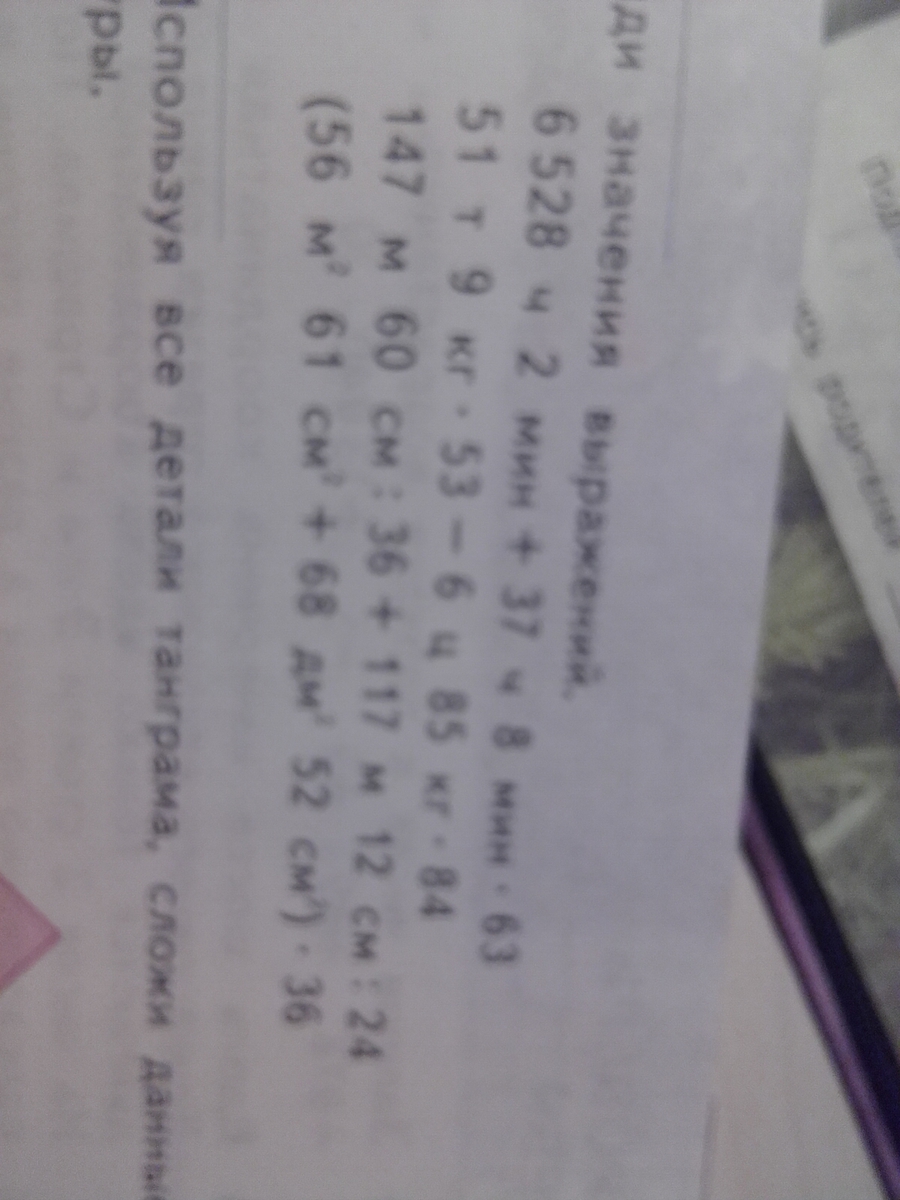 ди значения выражений.
6 528 ч 2 мин + 37 ч 8 мин · 63
51 т 9 кг · 53 – 6 ц 85 кг · 84
147 м 60 см : 36 + 117 м 12 см : 24
(56 м² 61 см² + 68 дм² 52 см²) · 36
Используя все детали танграма, сложи данные
уры.